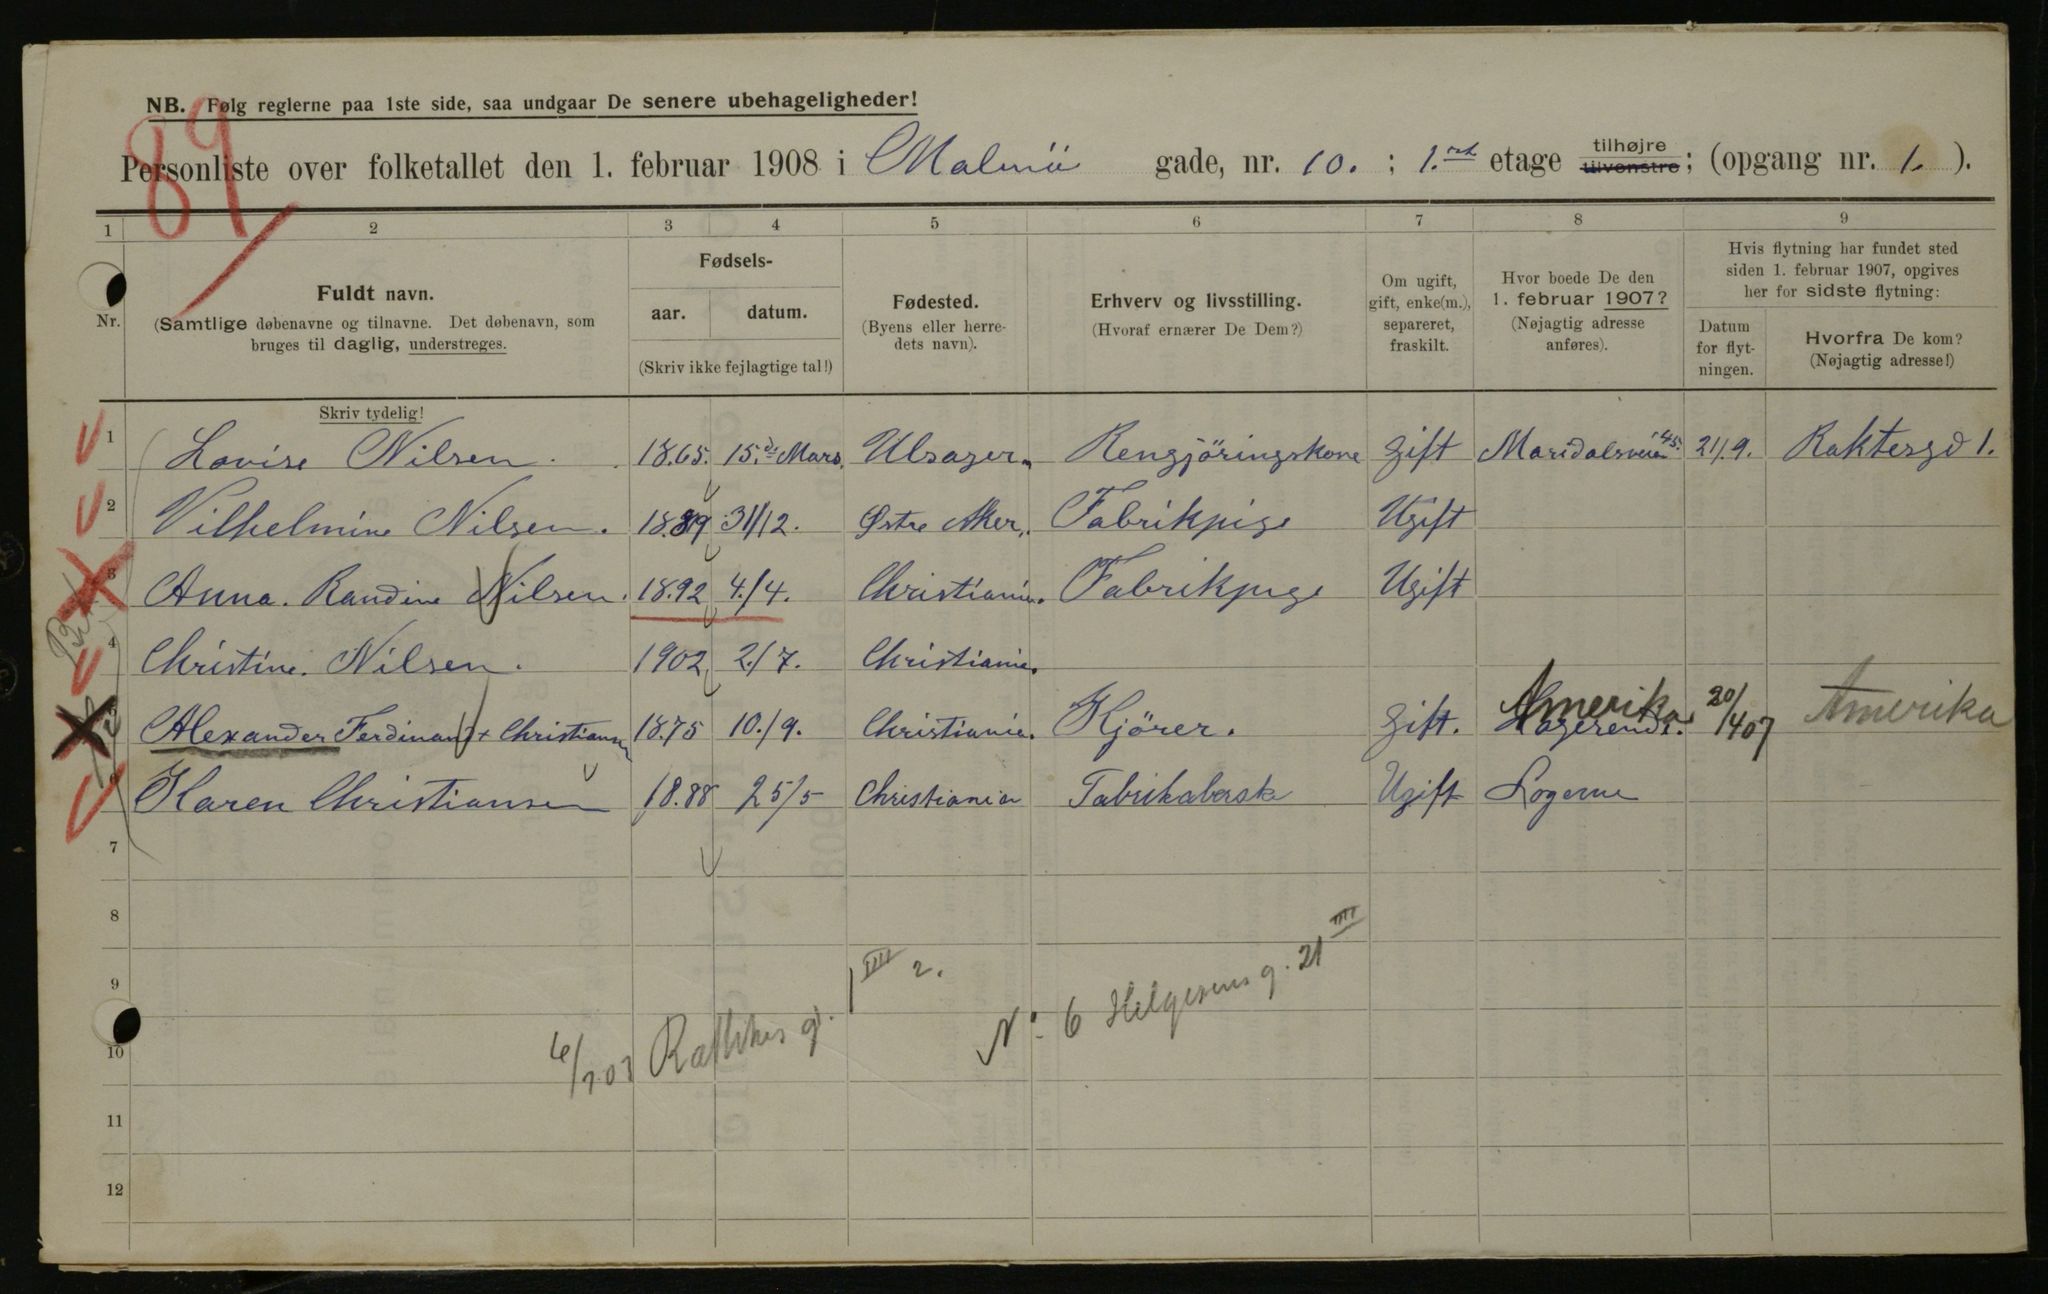 NB. Følg reglerne paa 1ste side, saa undgaar De senere ubehageligheder!
89
Personliste over folketallet den 1. februar 1908 i Malmö gade, nr. 10. ; 1. etage tilhøjre tilvenstre; (opgang nr. 1. ).
1 2 3 4 5 6 7 8 9
Nr. Fuldt navn. (Samtlige døbenavne og tilnavne. Det døbenavn, som bruges til daglig, understreges.
Fødsels- aar. datum. (Skriv ikke fejlagtige tal!)
Fødested. (Byens eller herredets navn).
Erhverv og livsstilling. (Hvoraf ernærer De Dem?)
Om ugift, gift, enke(m.), separeret, fraskilt.
Hvor boede De den 1. februar 1907? (Nøjagtig adresse anføres).
Hvis flytning har fundet sted siden 1. februar 1907, opgives her for sidste flytning:
Datum for flytningen.
Hvorfra De kom? (Nøjagtig adresse!)
Skriv tydelig!
1 Lovise Nilsen. 1865. 15. de Mars. Ulsager. Rengjöringskone gift Maridalsveien 45. 21/9. Raktesgd 1.
2 Vilhelmine Nilsen. 1889 31/12. Østre Aker. Fabrikpige Ugift
3 Anna. Randine Nilsen. 1892 4./4. Christiania. Fabrikpige Ugift
4 Christine. Nilsen. 1902 2./7. Christiania.
5 Alexander Ferdinand Christiansen 1875 10./9. Christiania. Kjörer. gift. Logerende. Amerika 20/4 07 Amerika
6 Karen Christiansen 1888 25/5 Christiania Fabrikabersk Ugift Logerne
7
8
9
1 IIII 2.
N: 6 Helgesens g. 21 III
10
11
12